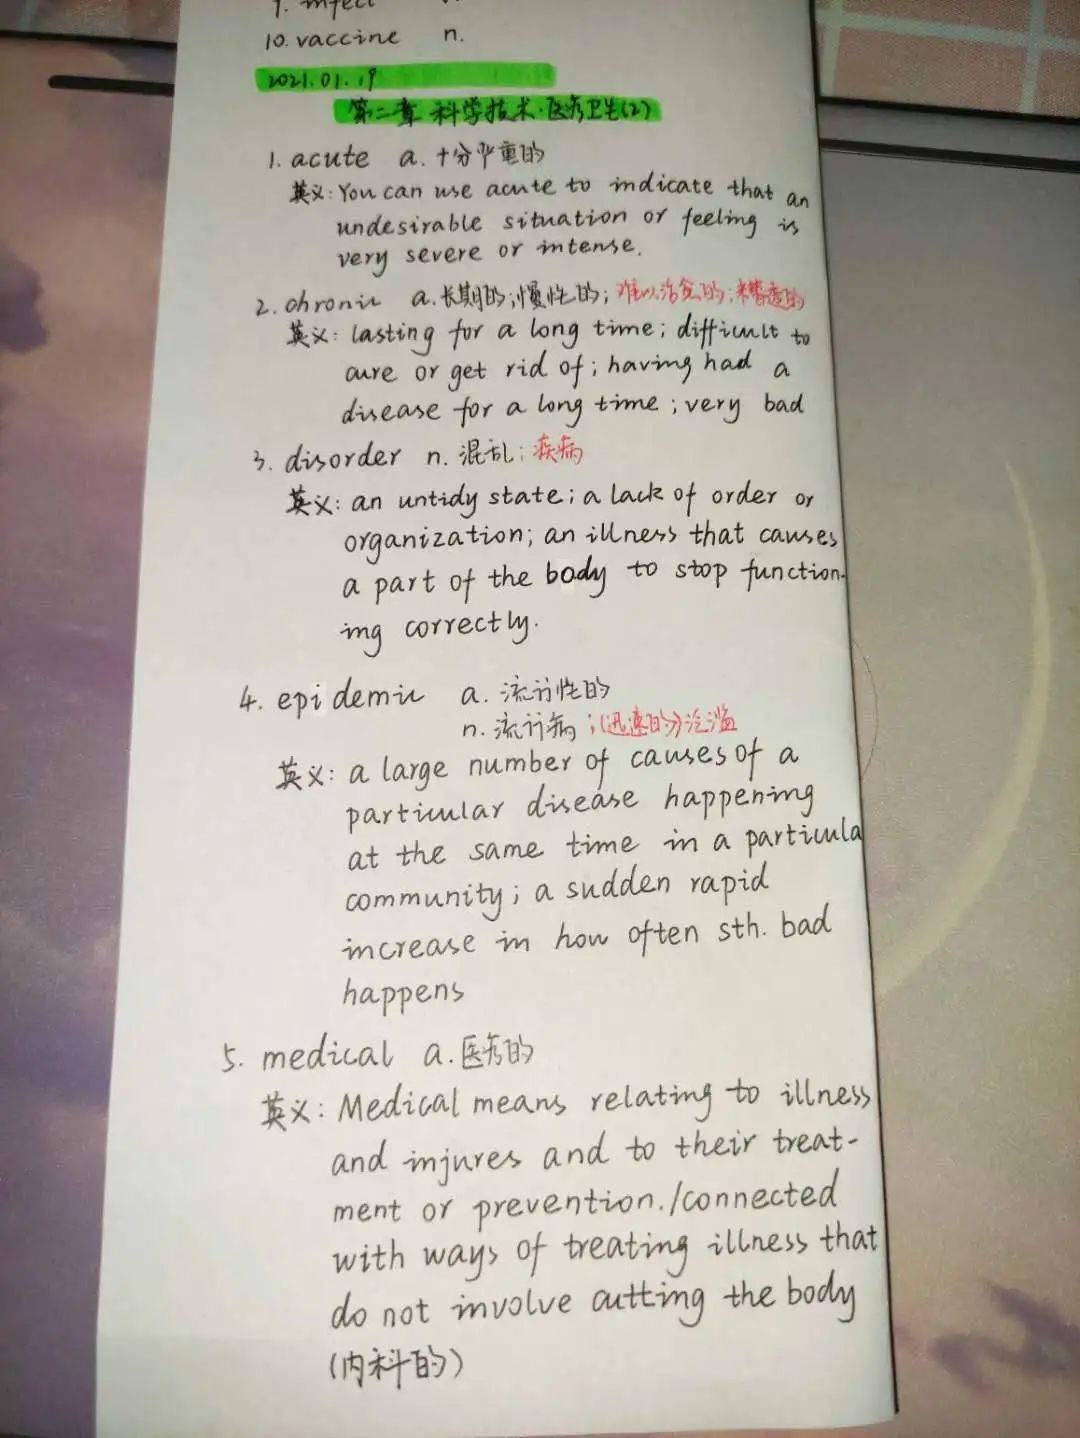 9. infect
10. vaccine n.
2021.01.19
第二章 科学技术·医疗卫生(2)
1. acute a. 十分严重的
英义: You can use acute to indicate that an
undesirable situation or feeling is
very severe or intense.
2. chronic a. 长期的;慢性的;难以治愈的;糟透的
英义: lasting for a long time; difficult to
cure or get rid of; having had a
disease for a long time; very bad
3. disorder n. 混乱; 疾病
英义: an untidy state; a lack of order or
organization; an illness that causes
a part of the body to stop function-
ing correctly.
4. epidemic a. 流行性的
n. 流行病 ;(迅速的)泛滥
英义: a large number of causes of a
particular disease happening
at the same time in a particula
community; a sudden rapid
increase in how often sth. bad
happens
5. medical a. 医疗的
英义: Medical means relating to illness
and injures and to their treat-
ment or prevention./connected
with ways of treating illness that
do not involve cutting the body
(内科的)